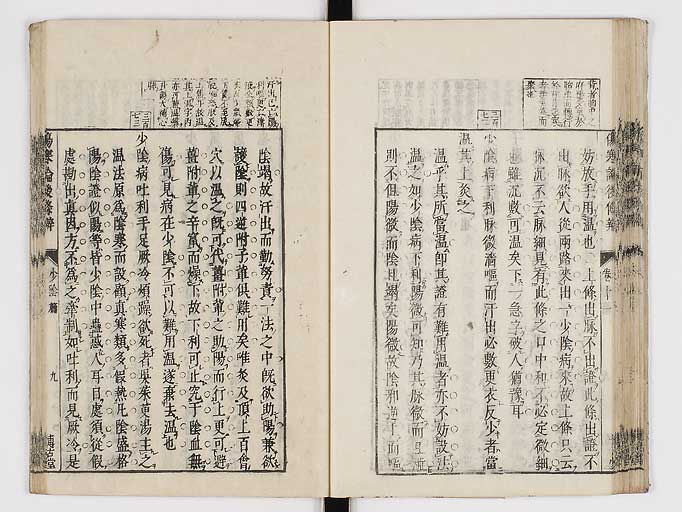 妨放手用溫也 上條出脉不出證此條出證不
出脉欲人從兩路來由一少陰病來故上條只云
脉沉不云脉細見有此條之口中和不必定微細
也雖沉數可溫矣下二急字破人猶豫耳
少陰病下利脉微濇嘔而汗出必數更衣反少者當
溫其上灸之
溫乎其所當溫即其證有難用溫者亦不妨設法
溫之如少陰病下利陽微可知乃其脉微而且濇
則不但陽微而陰且竭矣陽微故陰邪逆上而嘔
傷寒論後條辨
卷十
陰竭故汗出而勤努責一法之中既欲助陽兼欲
護陰則四逆附子輩俱難用矣唯灸及頂上百會
穴以溫之既可代薑附輩之助陽而行上更可避
薑附輩之辛竄而燥下故下利可止究于陰血無
傷可見病在少陰不可以難用溫遂棄去溫也
少陰病吐利手足厥冷煩躁欲死者吳茱萸湯主之
溫法原爲陰寒而設顧真寒類多假熱凡陰盛格
陽陰證似陽等皆少陰中蠱惑人耳目處須從假
處勘出真因方不爲之牽制如吐利而見厥冷是
傷寒論後條辨
少陰篇
九